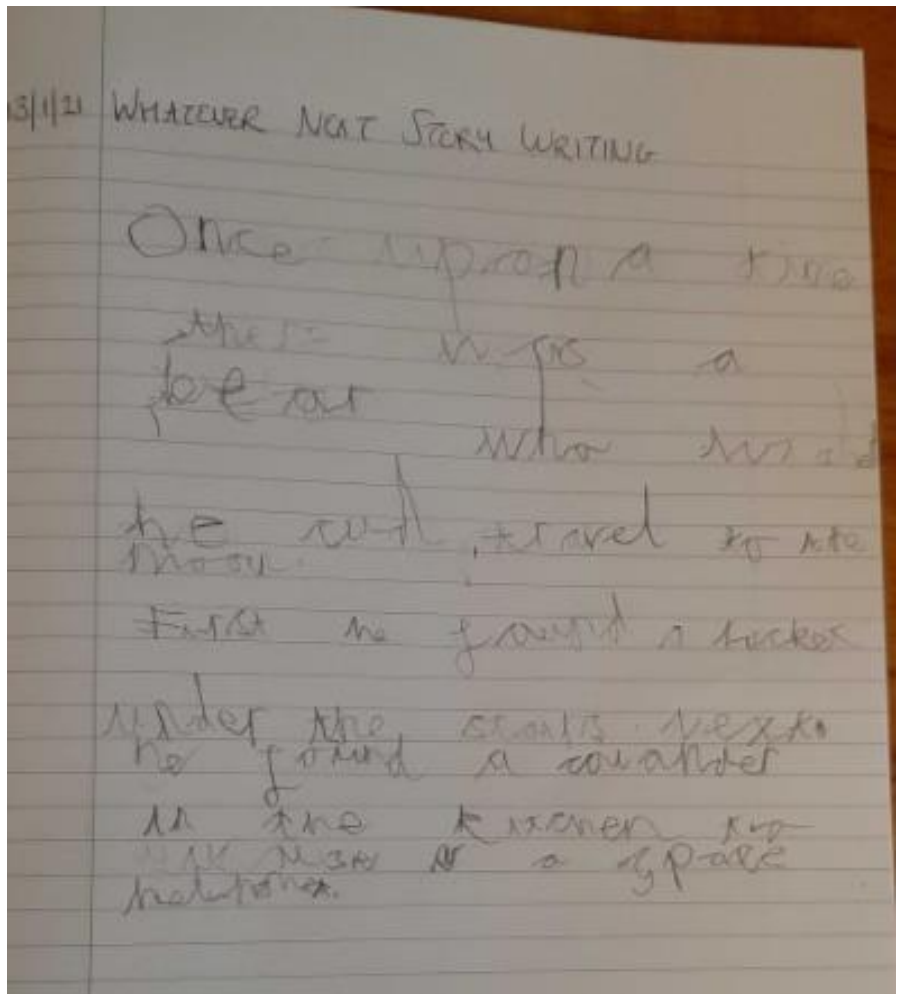 13/1/21 WHATEVER NEXT STORY WRITING
Once upon a time
there was a
bear
who
he travel to the
moon.
First he found a rocket
under the stairs. Next
he found a
in the kitchen to
a space